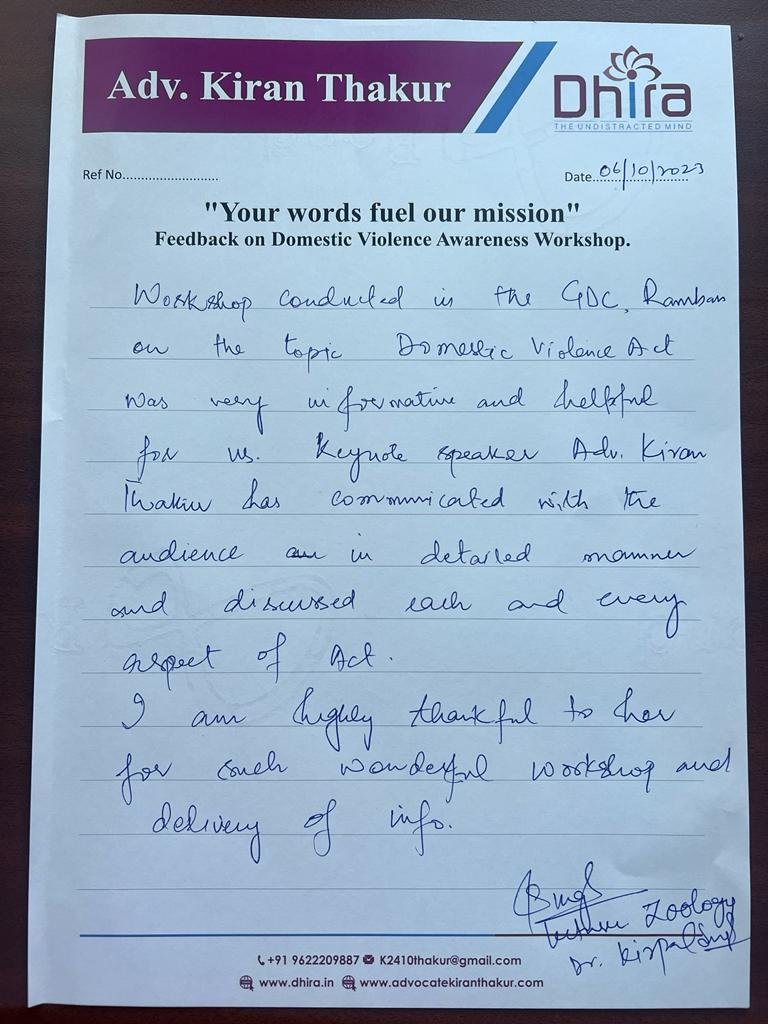 Adv. Kiran Thakur
Dhira
THE UNDISTRACTED MIND
Ref No..........................
Date..06/10/2023
"Your words fuel our mission"
Feedback on Domestic Violence Awareness Workshop.
Workshop conducted in the GDC, Ramban
on the topic Domestic Violence Act
was very informative and helpful
for us. Keynote speaker Adv. Kiran
Thakur has communicated with the
audience in detailed manner
and discussed each and every
aspect of Act.
I am highly thankful to her
for such wonderful workshop and
delivery of info.
Zoology
Dr. Kirpal Singh
+91 9622209887 K2410thakur@gmail.com
www.dhira.in www.advocatekiranthakur.com